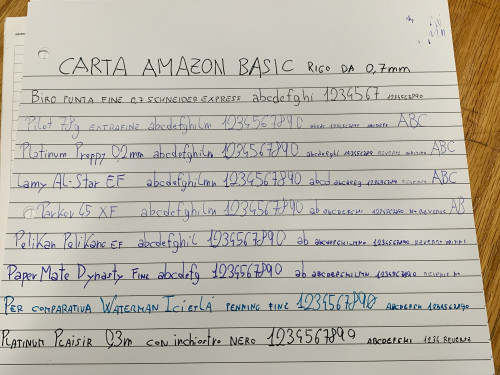 CARTA AMAZON BASIC RIGO DA 0,7mm
BIRO PUNTA FINE 0,7 SCHNEIDER EXPRESS abcdefghi 1234567 1234567890
Pilot 78g EXTRAFINE abcdefghilm 1234567890 ABC
Platinum Preppy 0,2mm abcdefghilm 1234567890 ABC
Lamy AL-Star EF abcdefghilmn 1234567890 abcd ABC
Parker 45 XF abcdefghilm 1234567890 ab ABCDEFGHI 1234567890 AB
Pelikan Pelikano EF abcdefghil 1234567890 ab ABCDEFGHILMN 1234567890
PaperMate Dynasty Fine abcdefg 1234567890 ab ABCDEFGHILMN 1234567890
PER COMPARATIVA WATERMAN 1234567890 ABCDEFGHI 1234567890
PLATINUM PLAISIR 0,3m CON INCHIOSTRO NERO 1234567890 ABCDEFGHI 1234